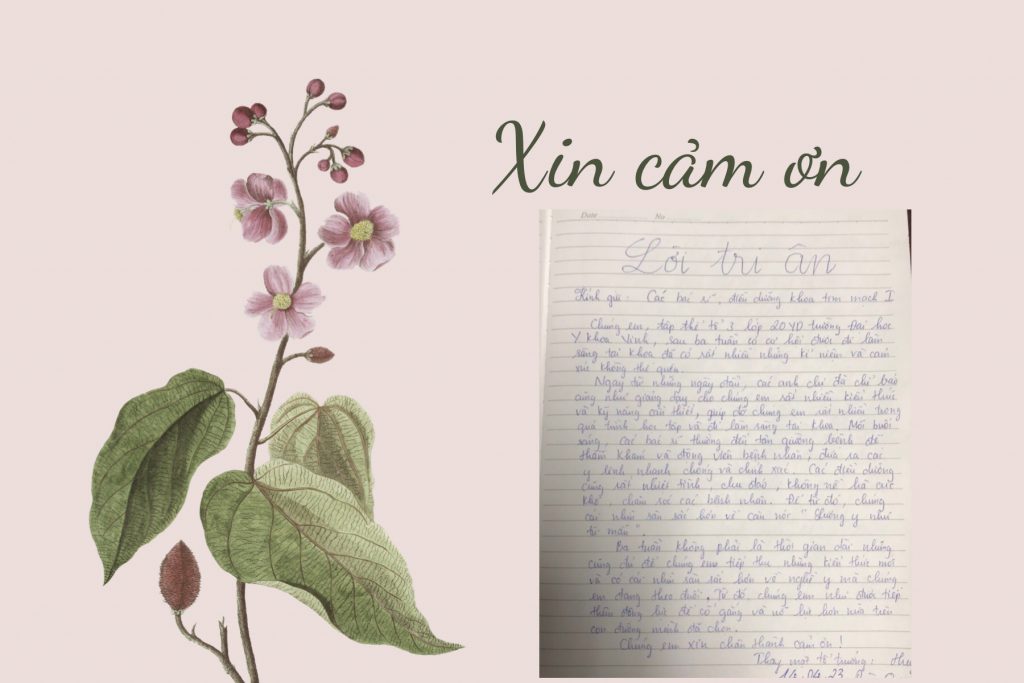 Xin cảm ơn
Date No
Lời tri ân
Kính gửi: Các bác sĩ, điều dưỡng khoa tim mạch I
Chúng em, tập thể tổ 3 lớp 20YD trường Đại học
Y khoa Vinh, sau ba tuần có cơ hội được đi lâm
sàng tại khoa đã có rất nhiều những kỉ niệm và cảm
xúc không thể quên.
Ngay từ những ngày đầu, các anh chị đã chỉ bảo
cũng như giảng dạy cho chúng em rất nhiều kiến thức
và kỹ năng cần thiết, giúp đỡ chúng em rất nhiều trong
quá trình học tập và đi lâm sàng tại khoa. Mỗi buổi
sáng, các bác sĩ thường đến tận giường bệnh để
thăm khám và động viên bệnh nhân, đưa ra các
y lệnh nhanh chóng và chính xác. Các điều dưỡng
cũng rất nhiệt tình, chu đáo, không nề hà cực
khổ, chăm sóc các bệnh nhân. Để từ đó, chúng
cái nhìn sâu sắc hơn về câu nói "Lương y như
từ mẫu".
Ba tuần không phải là thời gian dài nhưng
cũng đủ để chúng em tiếp thu những kiến thức mới
và có cái nhìn sâu sắc hơn về nghề y mà chúng
em đang theo đuổi. Từ đó, chúng em như được tiếp
thêm động lực để cố gắng và nỗ lực hơn nữa trên
con đường mình đã chọn.
Chúng em xin chân thành cảm ơn!
Thay mặt tổ trưởng:
14.04.23